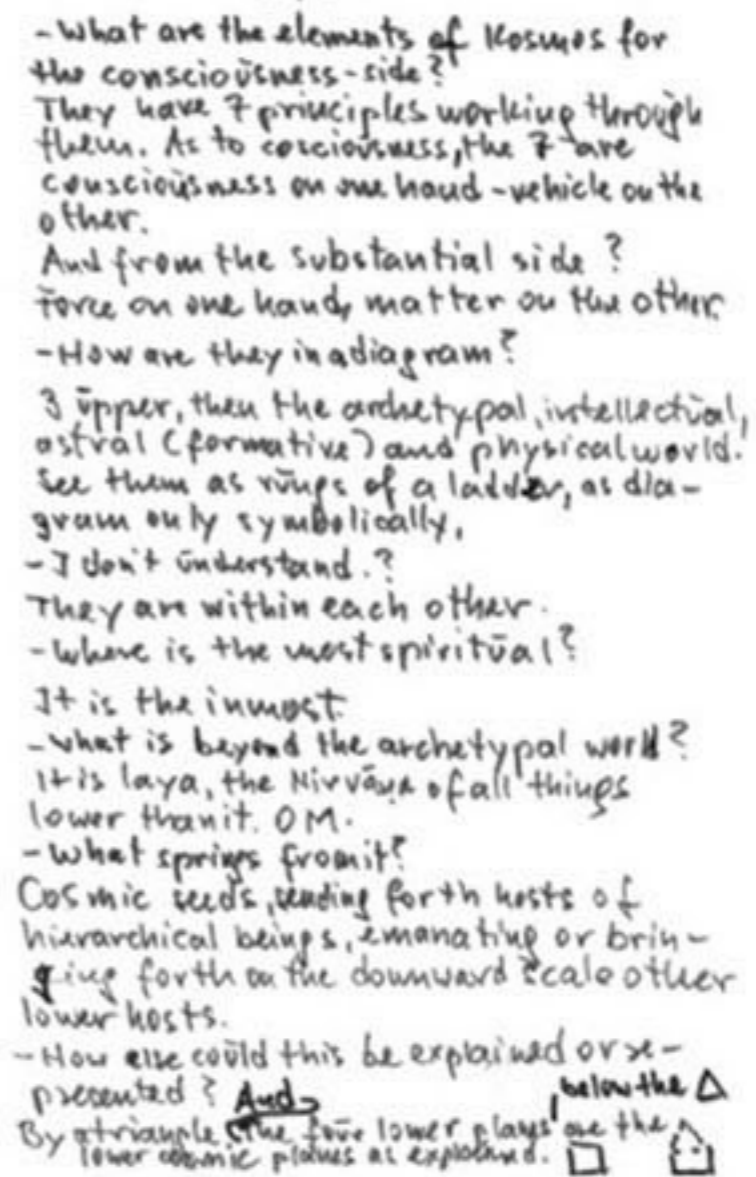 -What are the elements of Kosmos for
the consciousness-side?
They have 7 principles working through
them. As to cosciousness, the 7 are
consciousness on one hand-vehicle on the
other.
And from the substantial side?
Force on one hand, matter on the other.
-How are they in a diagram?
3 upper, then the archetypal, intellectual,
astral (formative) and physical world.
See them as rungs of a ladder, as dia-
gram only symbolically,
-I don't understand.?
They are within each other.
-Where is the most spiritual?
It is the inmost
-What is beyond the archetypal world?
It is laya, the Nirvāna of all things
lower than it. OM.
-What springs from it?
Cosmic seeds, sending forth hosts of
hierarchical beings, emanating or brin-
ging forth on the downward scale other
lower hosts.
-How else could this be explained or re-
presented? And
below the △
By a triangle. The four lower planes are the
lower cosmic planes as explained.